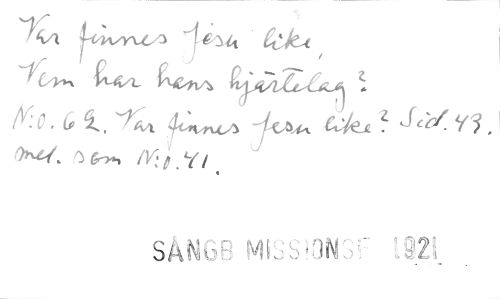 Var finnes Jesu like,
Vem har hans hjärtelag?
N:o. 62. Var finnes Jesu like? Sid. 43.
mel. som N:o. 41.
SÅNGB MISSIONSF 1921